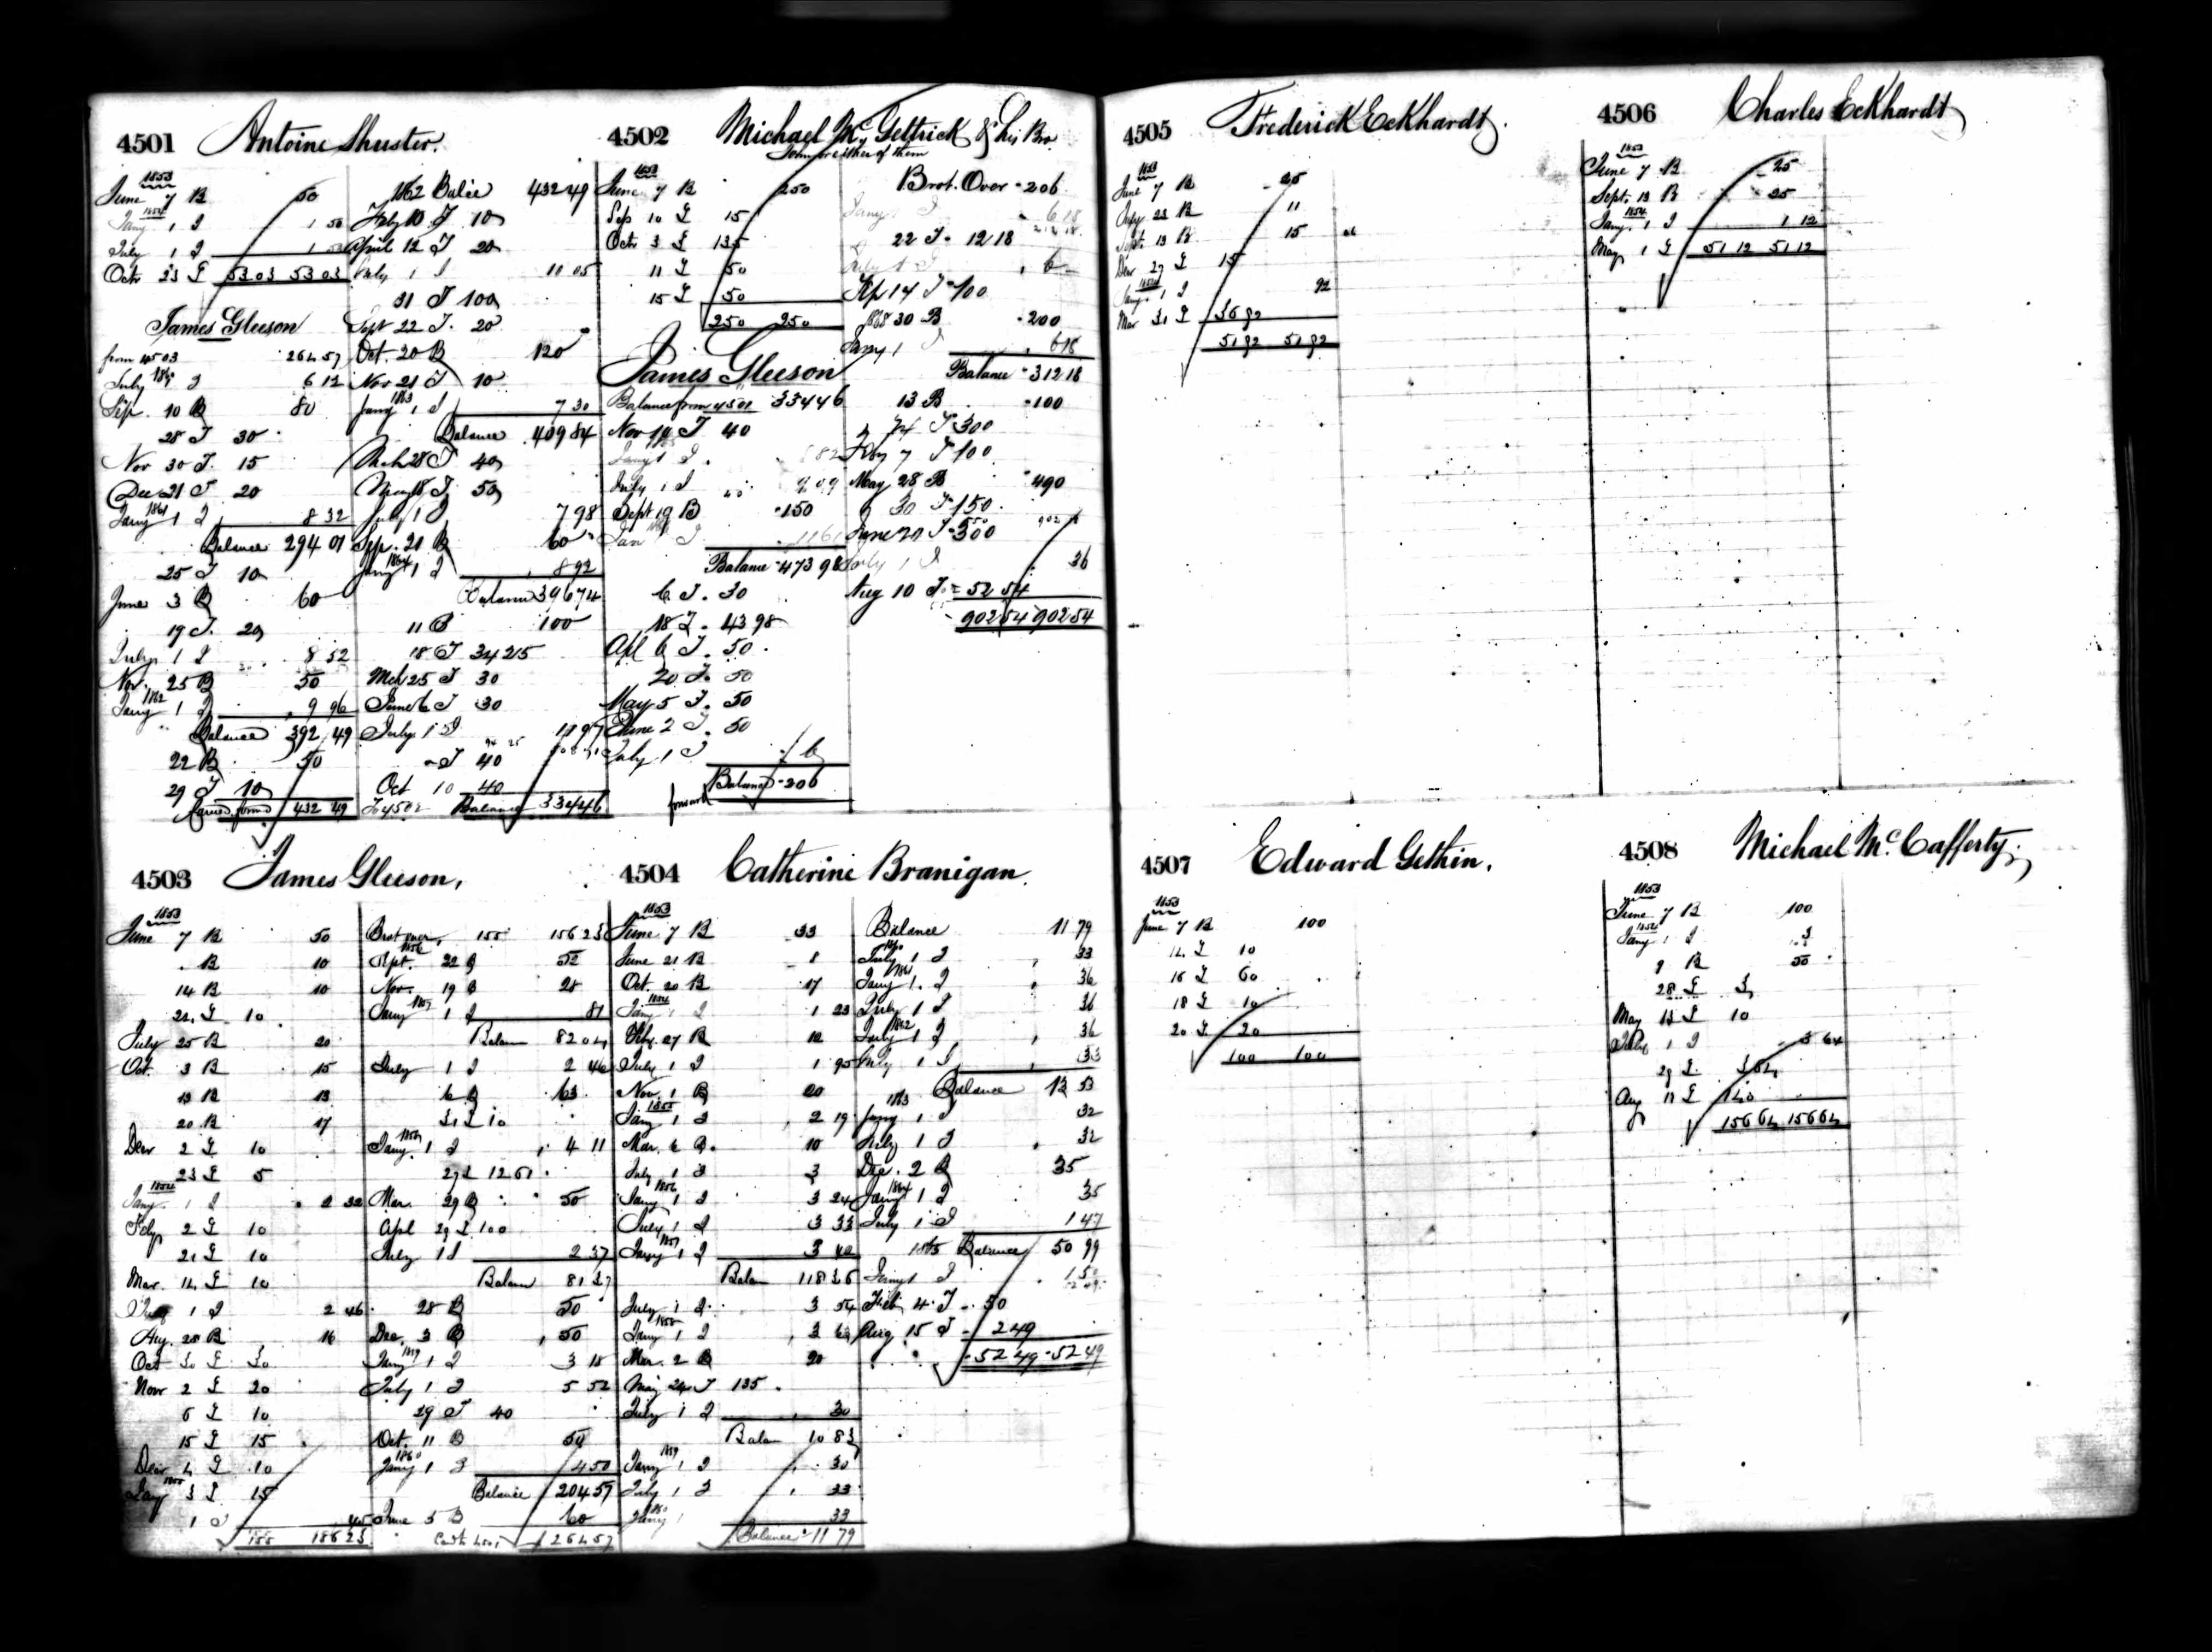 4501 Antoine Shuster.
1853
June 7 B 50
1854
Jany 1 I 1 50
July 1 I 1 53
Octr 23 I 53 03 53 03
James Gleeson
from 4503 264 57
July 1860 I 6 12
Sep. 10 B 80
28 I 30
Nov 30 I. 15
Dec 21 I 20
Jany 1861 1 I 8 32
Balance 294 01
25 I 10
June 3 B 60
19 I. 20
July 1 I 8 52
Nov. 25 B 50
Jany 1862 1 I 9 96
Balance 392 49
22 B 50
29 I 10
Carried forwd 432 49
1862 Balce 432 49
Feby 10 I 10
April 12 I 20
July 1 I 11 05
31 I 100
Sept 22 I. 20
Oct. 20 B 120
Nov 21 I 10
Jany 1863 1 I 7 30
Balance 409 84
Mch 28 I 40
May 18 I 50
July 1 I 7 98
Sep. 21 B 60
Jany 1864 1 I 8 92
Balance 396 74
11 B 100
18 I 342 15
Mch 25 I 30
June 6 I 30
July 1 I 11 97
I 40
Oct 10 40
To 4502 Balance 334 46
4502 Michael McGettrick & his Bro
John or either of them
1853
June 7 B 250
Sep 10 I 15
Octr 3 I 135
11 I 50
15 I 50
250 250
James Gleeson
Balance from 4501 334 46
Nov 19 I 40
Jany 1 I 6 82
July 1 I
Sept 19 B 150
Jan 1 I 11 61
Balance 473 98
6 I. 30
18 I. 43 98
Apl 6 I. 50
20 I. 50
May 5 I. 50
June 2 I. 50
July 1 I 6
Balance 206
forward
Brot. Over 206
Jany 1 I 6 18
22 I. 12 18
July 1 I 6
Sep 14 I 100
1868 30 B 200
Jany 1 I 6 18
Balance 312 18
13 B 100
24 I 300
Feby 7 I 100
May 28 B 490
30 I 150
June 20 I 300
July 1 I 36
Aug 10 I 52 54
902 54 902 54
4503 James Gleeson,
1853
June 7 B 50
B 10
14 B 10
24 I 10
July 25 B 20
Oct. 3 B 15
13 B 13
20 B 17
Decr 2 I 10
23 I 5
1854
Jany. 1 I 2 32
Feby 2 I 10
21 I 10
Mar. 14 I 10
July 1 I 2 46
Aug. 28 B 16
Oct 30 I 30
Novr 2 I 20
6 I 10
15 I 15
Decr 4 I 10
Jany 1855 3 I 15
1 I 45
155 156 23
Brot over, 155 156 23
1856
Sept. 22 B 52
Nov. 19 B 28
Jany 1857 1 I 81
Balan 82 04
July 1 I 2 46
6 B 63
31 I 10
Jany. 1858 1 I 4 11
27 I 12 61
Mar. 29 B 50
Apl 29 I 100
July 1 I 2 37
Balan 81 37
28 B 50
Dec. 3 B 50
Jany 1859 1 I 3 18
July 1 I 5 52
29 I 40
Oct. 11 B 50
Jany 1860 1 I 4 50
Balance 204 57
June 5 B 60
264 57
4504 Catherine Branigan.
1853
June 7 B 33
June 21 B 1
Oct. 20 B 17
1854
Jany 1 I 1 23
Feby. 27 B 12
July 1 I 1 95
Nov. 1 B 20
1855
Jany 1 I 2 19
Mar. 6 B. 10
July 1 I 3
1856
Jany 1 I 3 24
July 1 I 3 33
Jany 1857 1 I 3 42
Balan 118 36
July 1 I 3 54
1858
Jany 1 I 3 63
Mar. 2 B 20
May 24 I 135
July 1 I 30
Balan 10 83
1859
Jany 1 I 30
July 1 I 33
1860
Jany 1 33
Balance 11 79
Balance 11 79
1860
July 1 I 33
1861
Jany 1. I 36
July 1 I 36
1862
Jany 1 I 36
July 1 I 33
Balance 13 53
1863
Jany 1 I 32
July 1 I 32
Dec. 2 B 35
Jany 1864 1 I 35
July 1 I 1 47
1865 Balance 50 99
Jany 1 I 1 50
Feb 4 I 50
Aug. 15 I 2 49
52 49 52 49
4505 Frederick Eckhardt.
1853
June 7 B 25
July 23 B 11
Sept. 13 B 15
Decr 29 I 15
1854
Jany. 1 I 92
Mar 31 I 36 92
51 92 51 92
4506 Charles Eckhardt
1853
June 7 B 25
Sept. 13 B 25
1854
Jany. 1 I 1 12
May 1 I 51 12 51 12
4507 Edward Gethin.
1853
June 7 B 100
14 I 10
16 I 60
18 I 10
20 I 20
100 100
4508 Michael McCafferty.
1853
June 7 B 100
1854
Jany 1 I 3
9 B 50
28 I 3
May 13 I 10
July 1 I 3 64
29 I 3 64
Aug 11 I 140
156 64 156 64